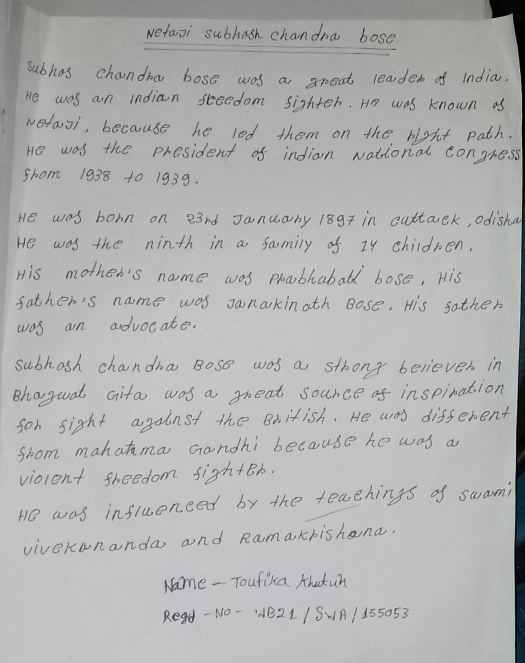 Netaji subhash chandra bose
Subhas chandra bose was a great leader of India.
He was an Indian freedom fighter. He was known as
Netaji, because he led them on the right path.
He was the President of indian National congress
from 1938 to 1939.
He was born on 23rd January 1897 in cuttack, odisha
He was the ninth in a family of 14 children.
His mother's name was Prabhabati bose. His
father's name was Janakinath Bose. His father
was an advocate.
Subhash chandra Bose was a strong believer in
Bhagwat Gita was a great source of inspiration
for fight against the British. He was different
from mahatma Gandhi because he was a
violent freedom fighter.
He was influenced by the teachings of swami
vivekananda and Ramakrishana.
Name - Toufika khatun
Regd - No - WB21/SWA/155053